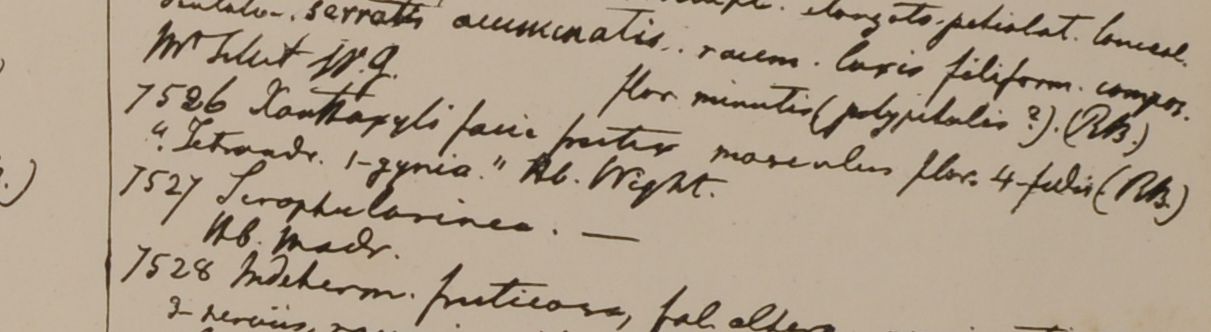 elongato-petiolat. lanceol.
serratis acuminatis. racem. laxis filiform. compos.
flor. minutis (polypetalis?). (RB.)
7526 Xanthoxyli facie frutex masculus flor. 4-fidis (RB.)
"Tetrandr. 1-gynia." Hb. Wight.
7527 Scrophularinea. —
Hb. Madr.
7528 Indeterm. fruticosa, fol. altern
3-nerviis,